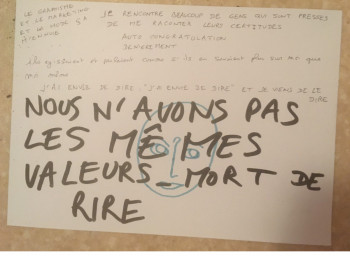 LE GRAPHISME
ET LE MARKETING
ET LE MOTEL 5A
M'ENNUIE
JE RENCONTRE BEAUCOUP DE GENS QUI SONT PRESSES
DE ME RACONTER LEURS CERTITUDES
AUTO CONGRATULATION
DENIGREMENT
et parlent comme s'ils en savaient plus sur moi que
moi même
J'AI ENVIE DE DIRE "J'AI ENVIE DE DIRE" ET JE VIENS DE LE
DIRE
NOUS N'AVONS PAS
LES MÊMES
VALEURS_MORT DE
RIRE